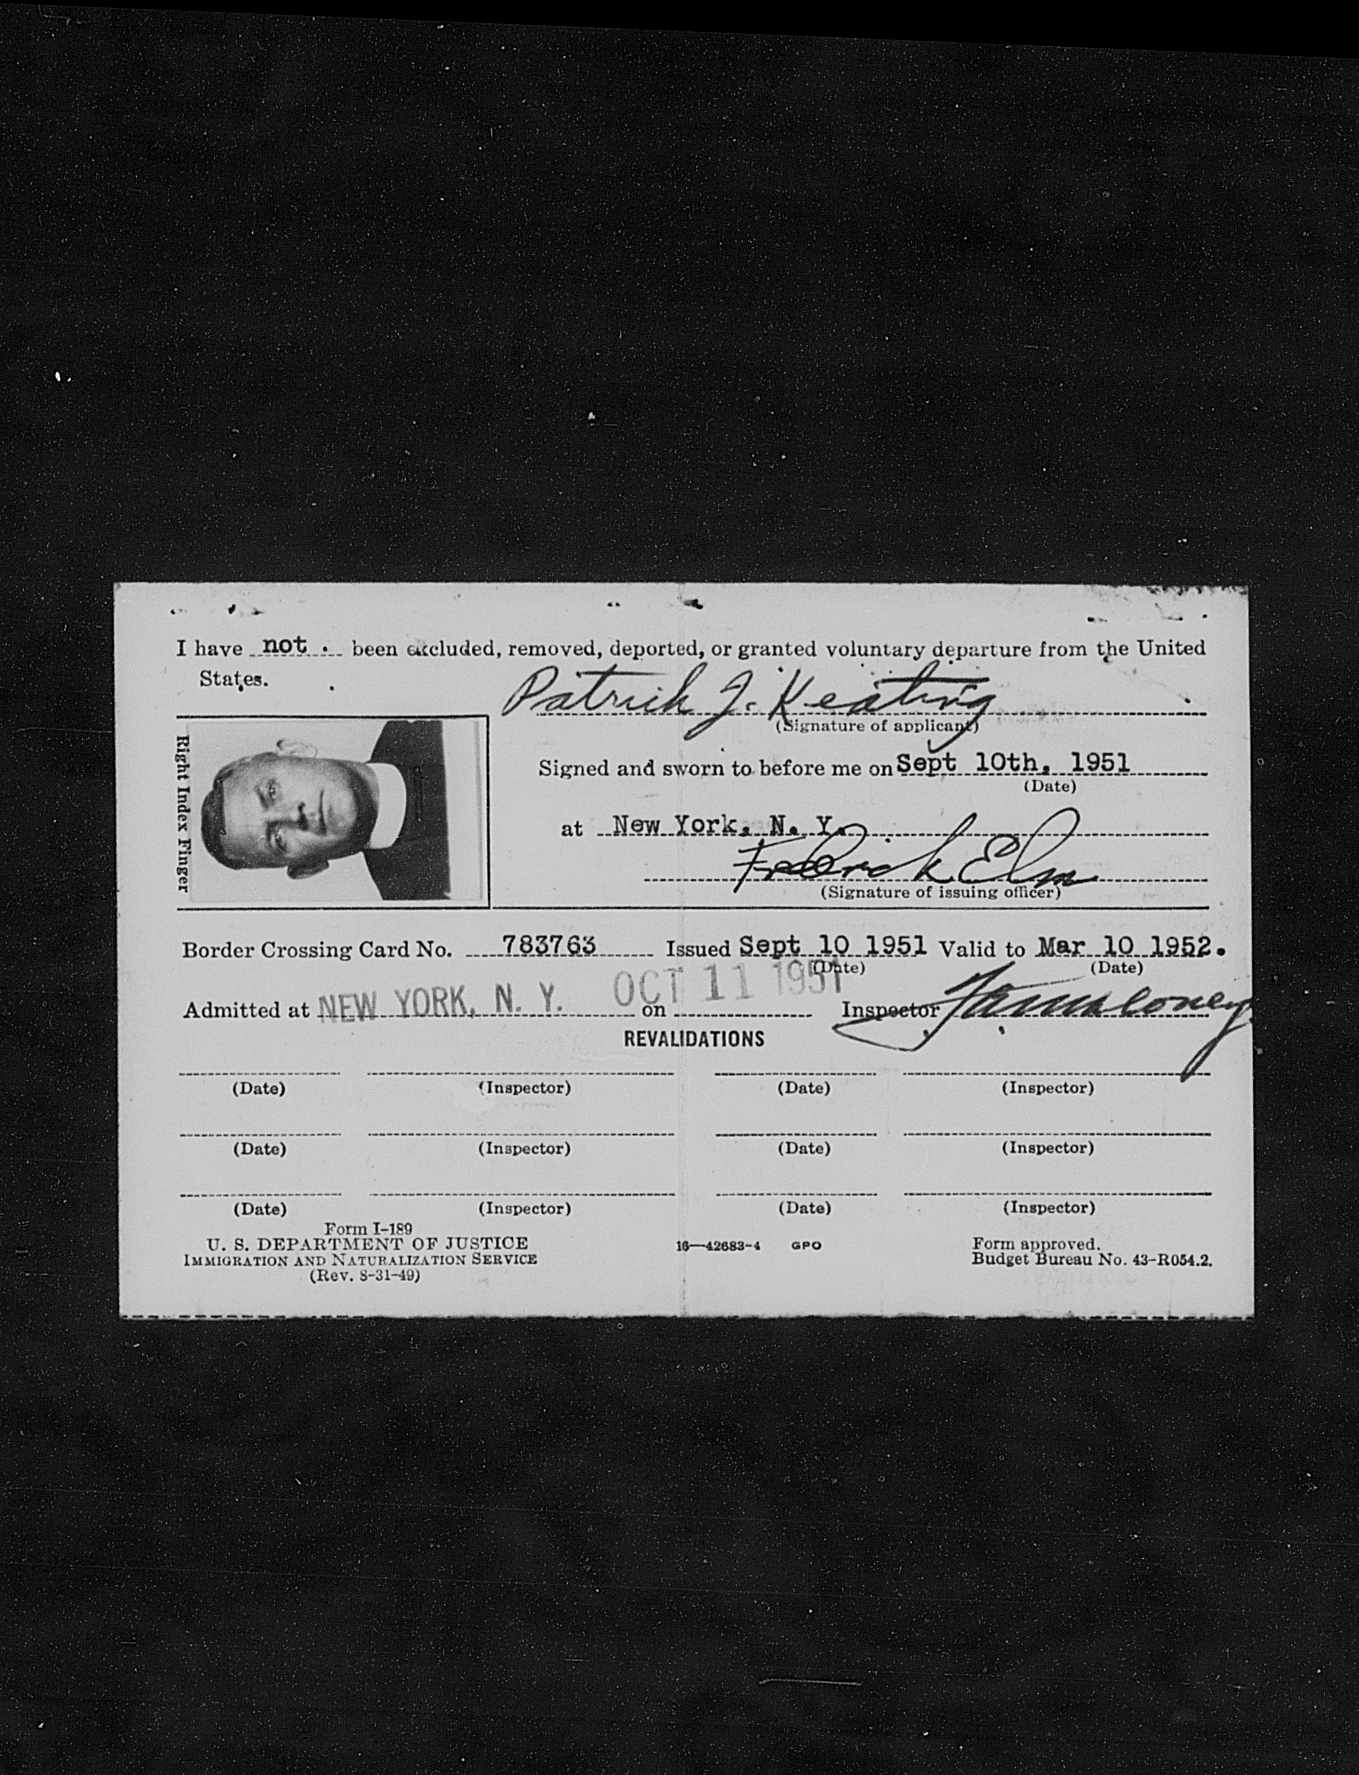 I have not . been excluded, removed, deported, or granted voluntary departure from the United
States.
Patrick J. Keating
(Signature of applicant)
Right Index Finger
Signed and sworn to before me on Sept 10th, 1951
(Date)
at New York, N. Y.
Frederick Elm
(Signature of issuing officer)
Border Crossing Card No. 783763 Issued Sept 10 1951 Valid to Mar 10 1952.
(Date) (Date)
Admitted at NEW YORK, N. Y. on OCT 11 1951 Inspector
REVALIDATIONS
(Date) (Inspector) (Date) (Inspector)
(Date) (Inspector) (Date) (Inspector)
(Date) (Inspector) (Date) (Inspector)
Form I-189
U. S. DEPARTMENT OF JUSTICE
IMMIGRATION AND NATURALIZATION SERVICE
(Rev. 8-31-49)
16—42683-4 GPO
Form approved.
Budget Bureau No. 43-R054.2.